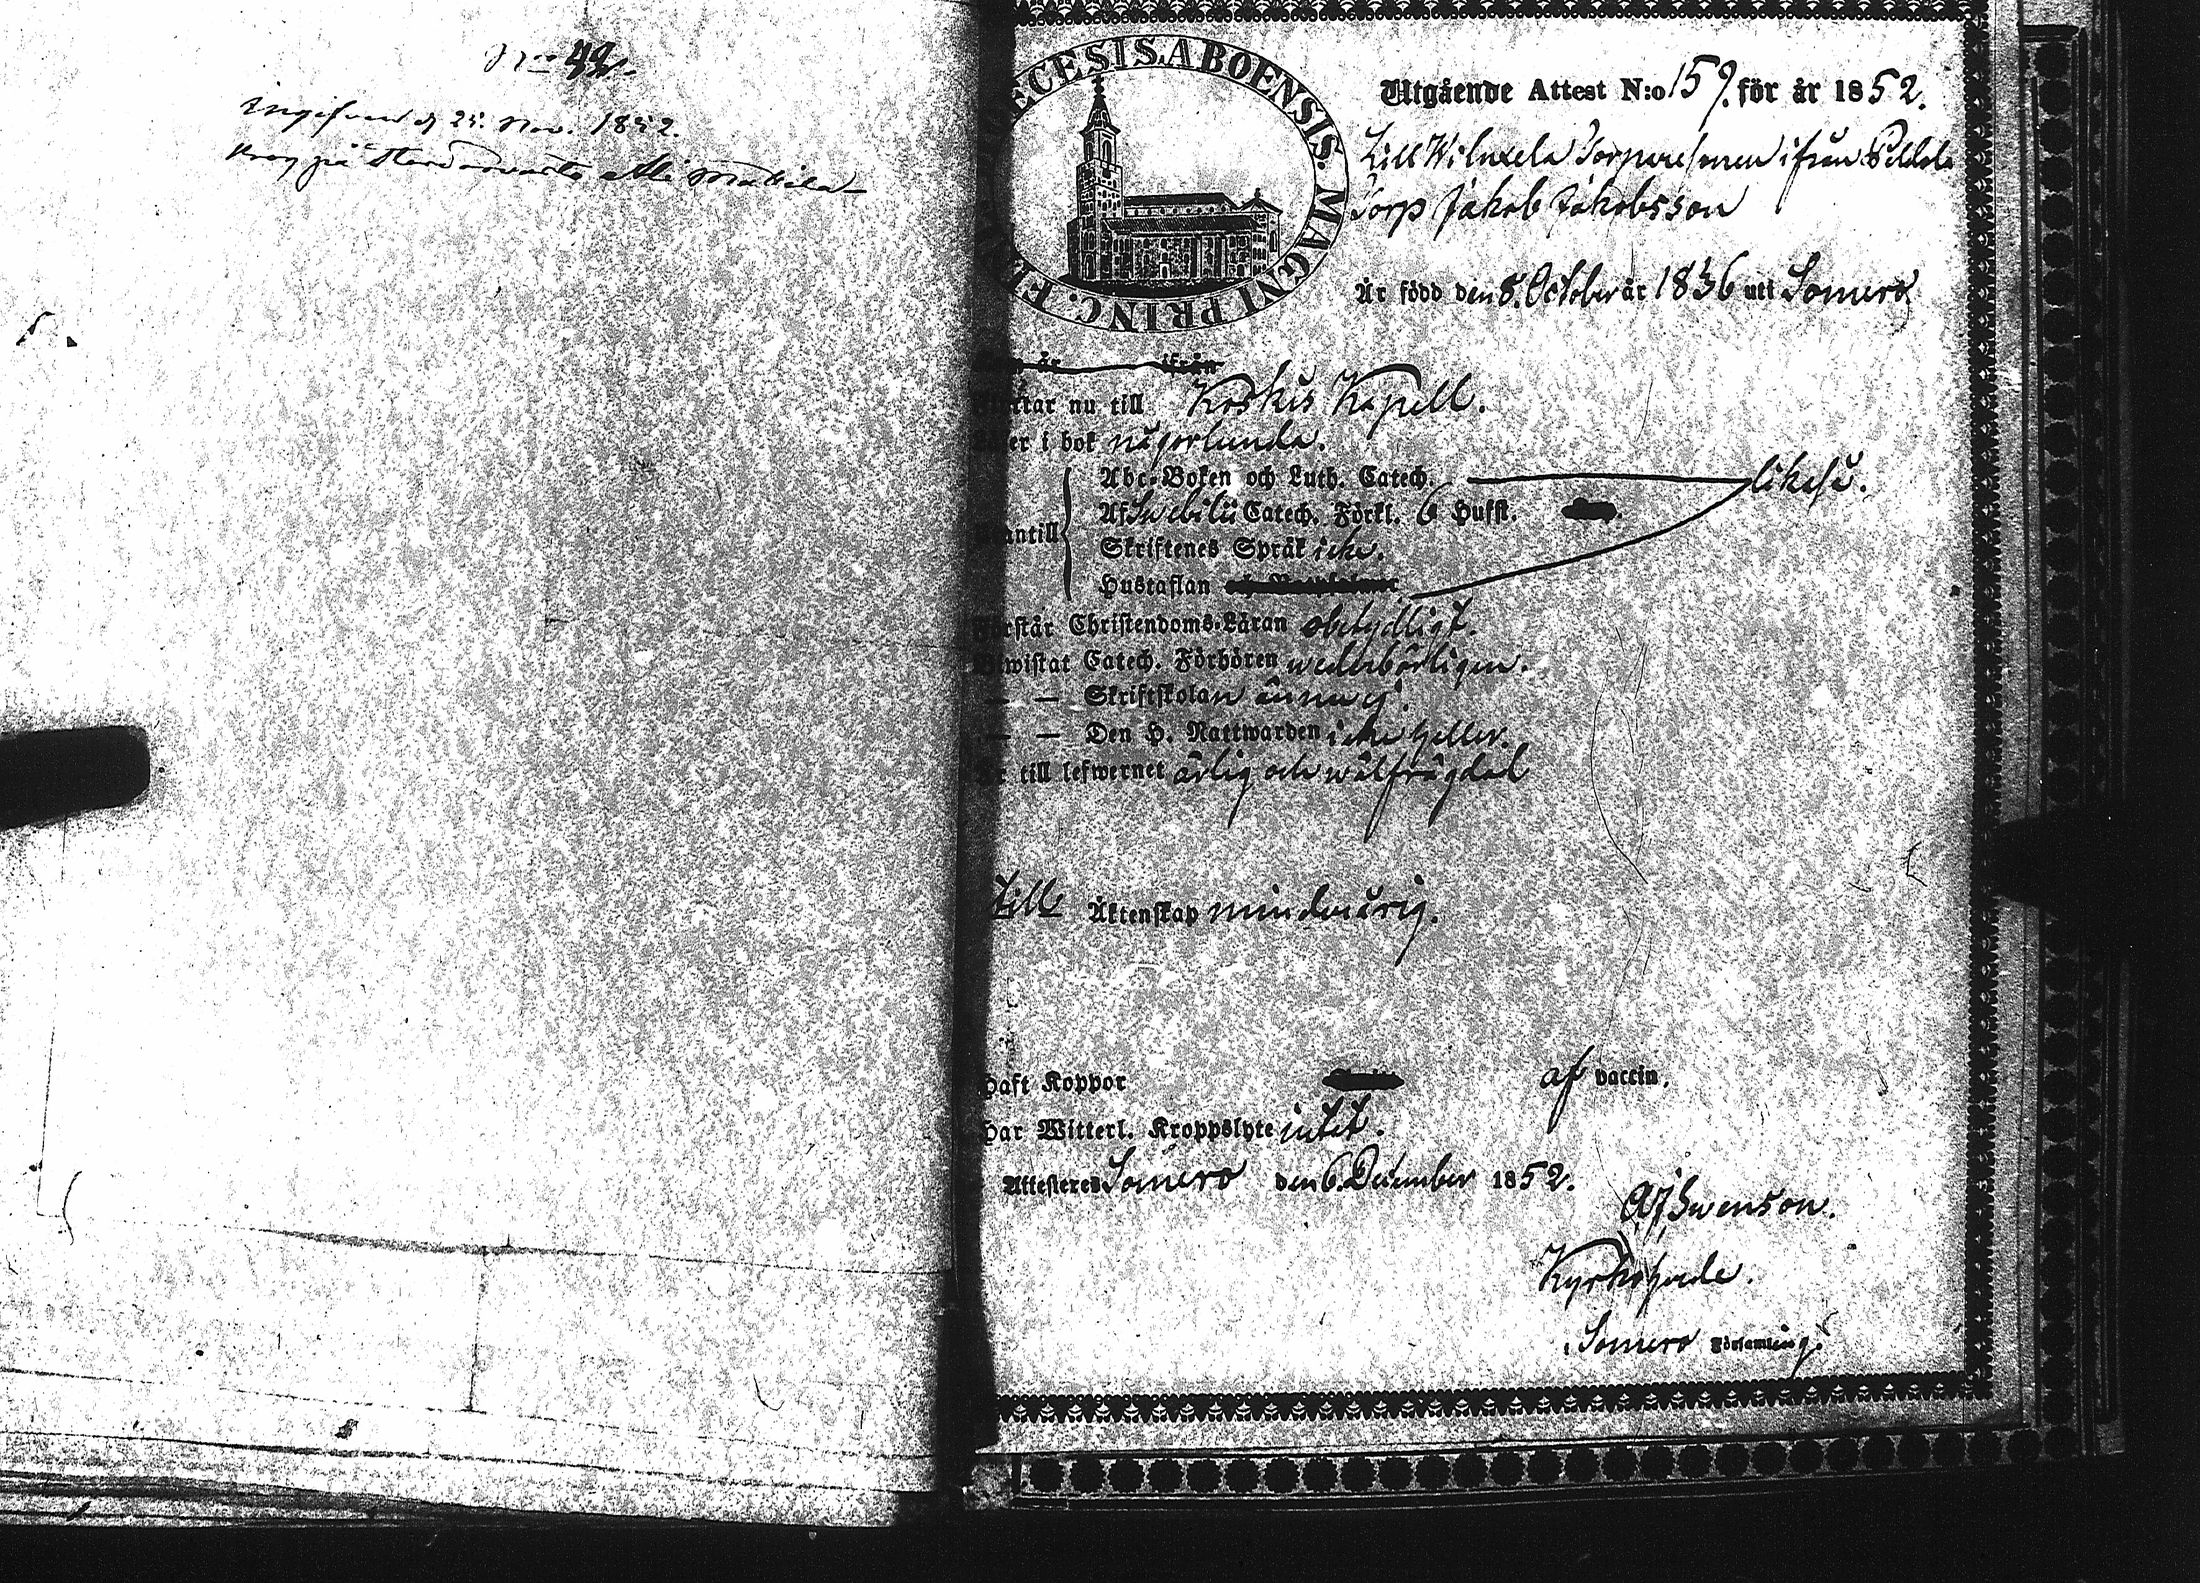 No 42.
Ingifven d 25. Nov. 1852.
ECESIS. ABOENSIS. MAGNI PRINC. F
Utgående Attest N:o 159. för år 1852.
Lill Torparesonen ifrån
Torp Jakob Jakobsson
Är född den 8. October år 1836 uti Somero
är ifrån
tar nu till Koskis Kapell.
er i bok någorlunda.
Abc-Boken och Luth. Catech. likaså.
Af Swebilii Catech. Förkl. 6 Hufst.
antill
Skriftenes Språk icke.
Hustaflan
rstår Christendoms-Läran obetydligt.
wistat Catech. Förhören wederbörligen.
— — Skriftskolan ännu ej.
— — Den H. Nattwarden icke heller.
r till lefwernet ärlig och wälfrägdad
till Äktenskap minderårig.
Haft Koppor af vaccin.
Har Witterl. Kroppslyte intet.
Attesteres Somero den 6. December 1852.
Swenson.
Kyrkoherde.
i Somero Församling.